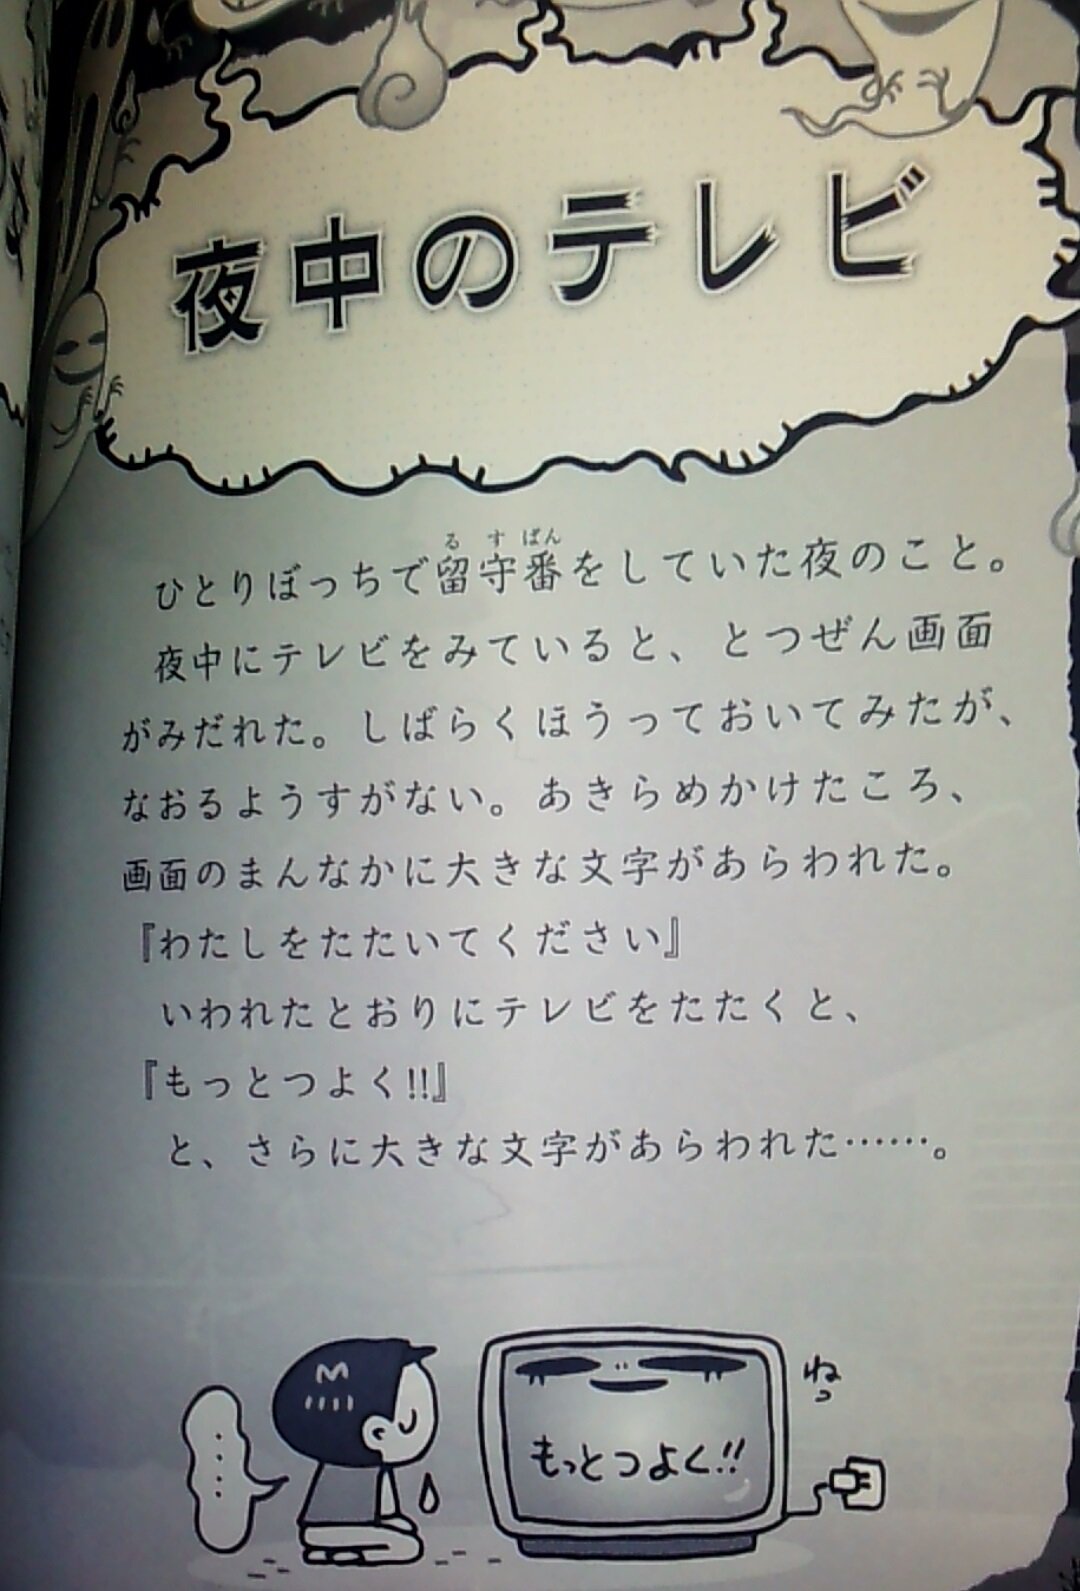 夜中のテレビ
ひとりぼっちで留守番をしていた夜のこと。
るすばん
夜中にテレビをみていると、とつぜん画面
がみだれた。しばらくほうっておいてみたが、
なおるようすがない。あきらめかけたころ、
画面のまんなかに大きな文字があらわれた。
『わたしをたたいてください』
いわれたとおりにテレビをたたくと、
『もっとつよく!!』
と、さらに大きな文字があらわれた……。
…
もっとつよく!!
ねっ